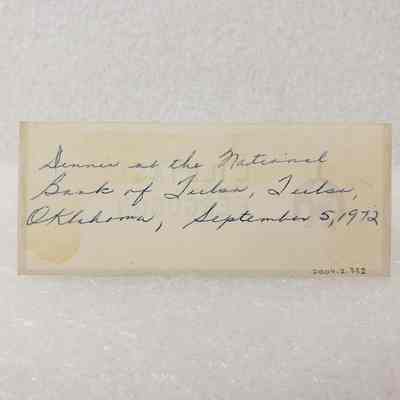 Dinner at the National
Bank of Tulsa, Tulsa,
Oklahoma, September 5, 1972
2004.2.332